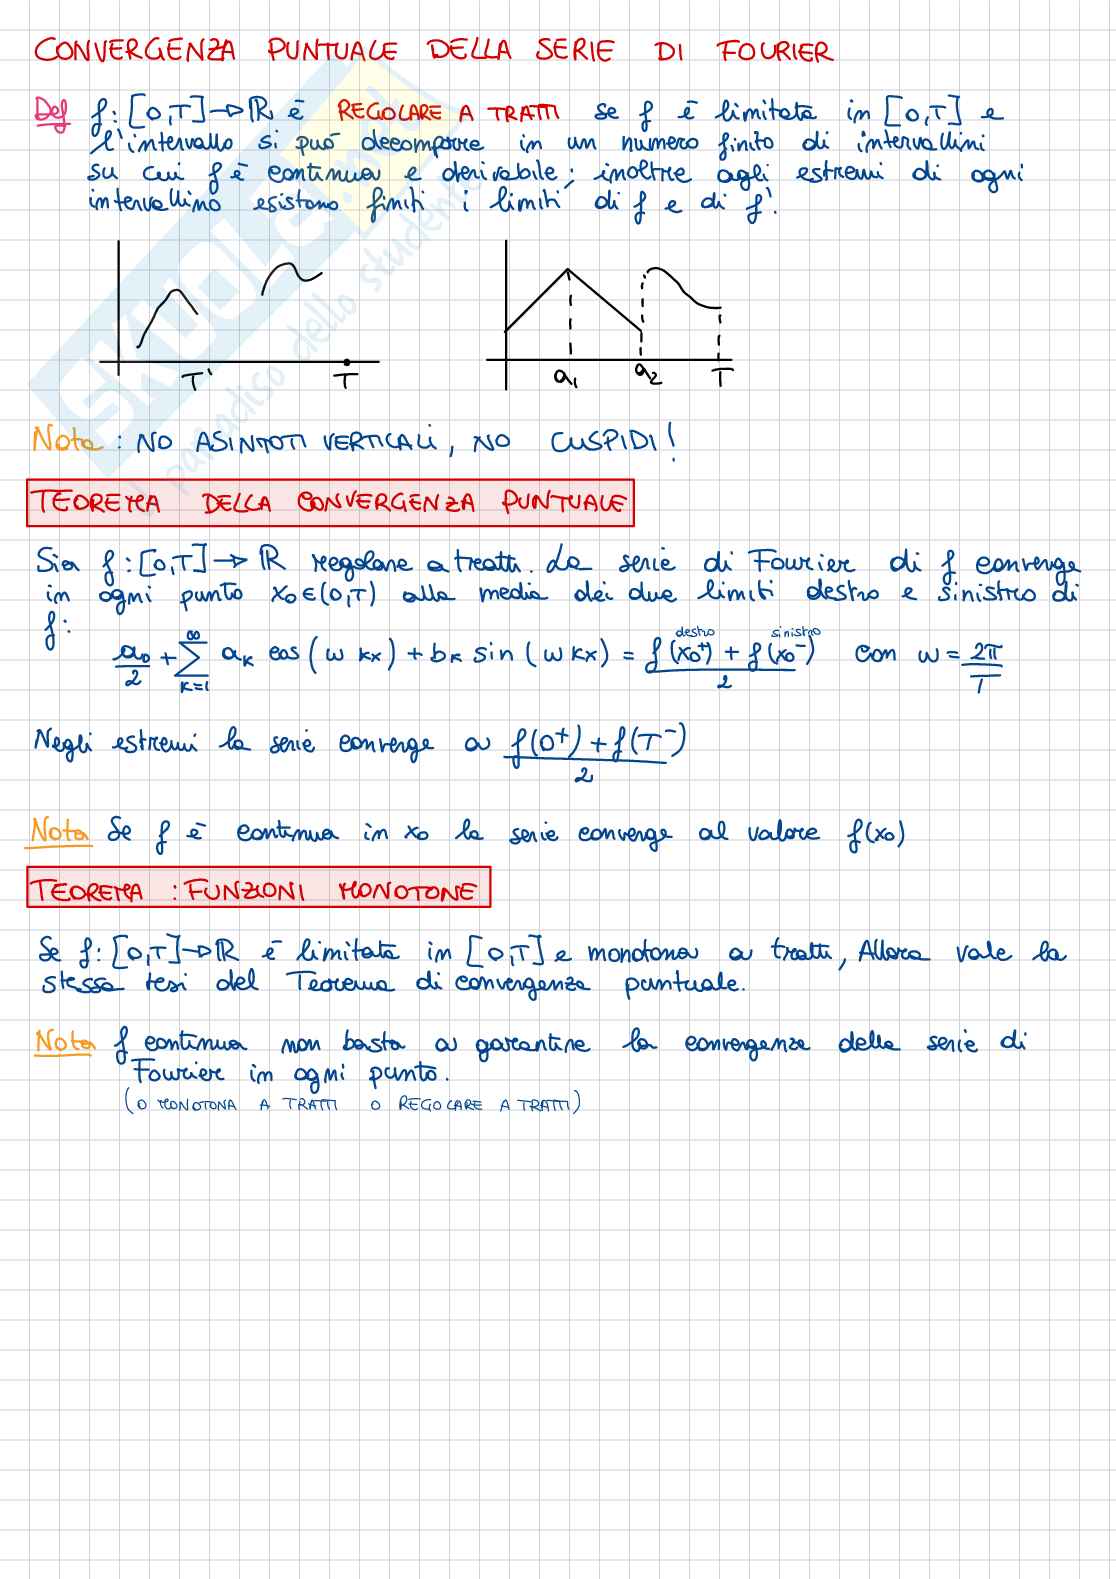 CONVERGENZA PUNTUALE DELLA SERIE DI FOURIER
Def f: [0,T]→ℝ è REGOLARE A TRATTI se f è limitata in [0,T] e
l'intervallo si può decomporre in un numero finito di intervallini
su cui f è continua e derivabile; inoltre agli estremi di ogni
intervallino esistono finiti i limiti di f e di f'.
T' T
a₁ a₂ T
Nota: NO ASINTOTI VERTICALI, NO CUSPIDI!
TEOREMA DELLA CONVERGENZA PUNTUALE
Sia f: [0,T]→ℝ regolare a tratti. La serie di Fourier di f converge
in ogni punto x₀∈(0,T) alla media dei due limiti destro e sinistro di
f:
destro sinistro
a₀/2 + ∑_{k=1}^{∞} aₖ cos(ω kx) + bₖ sin(ω kx) = (f(x₀⁺) + f(x₀⁻))/2 con ω = 2π/T
Negli estremi la serie converge a (f(0⁺) + f(T⁻))/2
Nota Se f è continua in x₀ la serie converge al valore f(x₀)
TEOREMA: FUNZIONI MONOTONE
Se f: [0,T]→ℝ è limitata in [0,T] e monotona a tratti, Allora vale la
stessa tesi del Teorema di convergenza puntuale.
Nota f continua non basta a garantire la convergenza della serie di
Fourier in ogni punto.
(O MONOTONA A TRATTI O REGOLARE A TRATTI)
SKUOLA.NET
paradiso dello studente